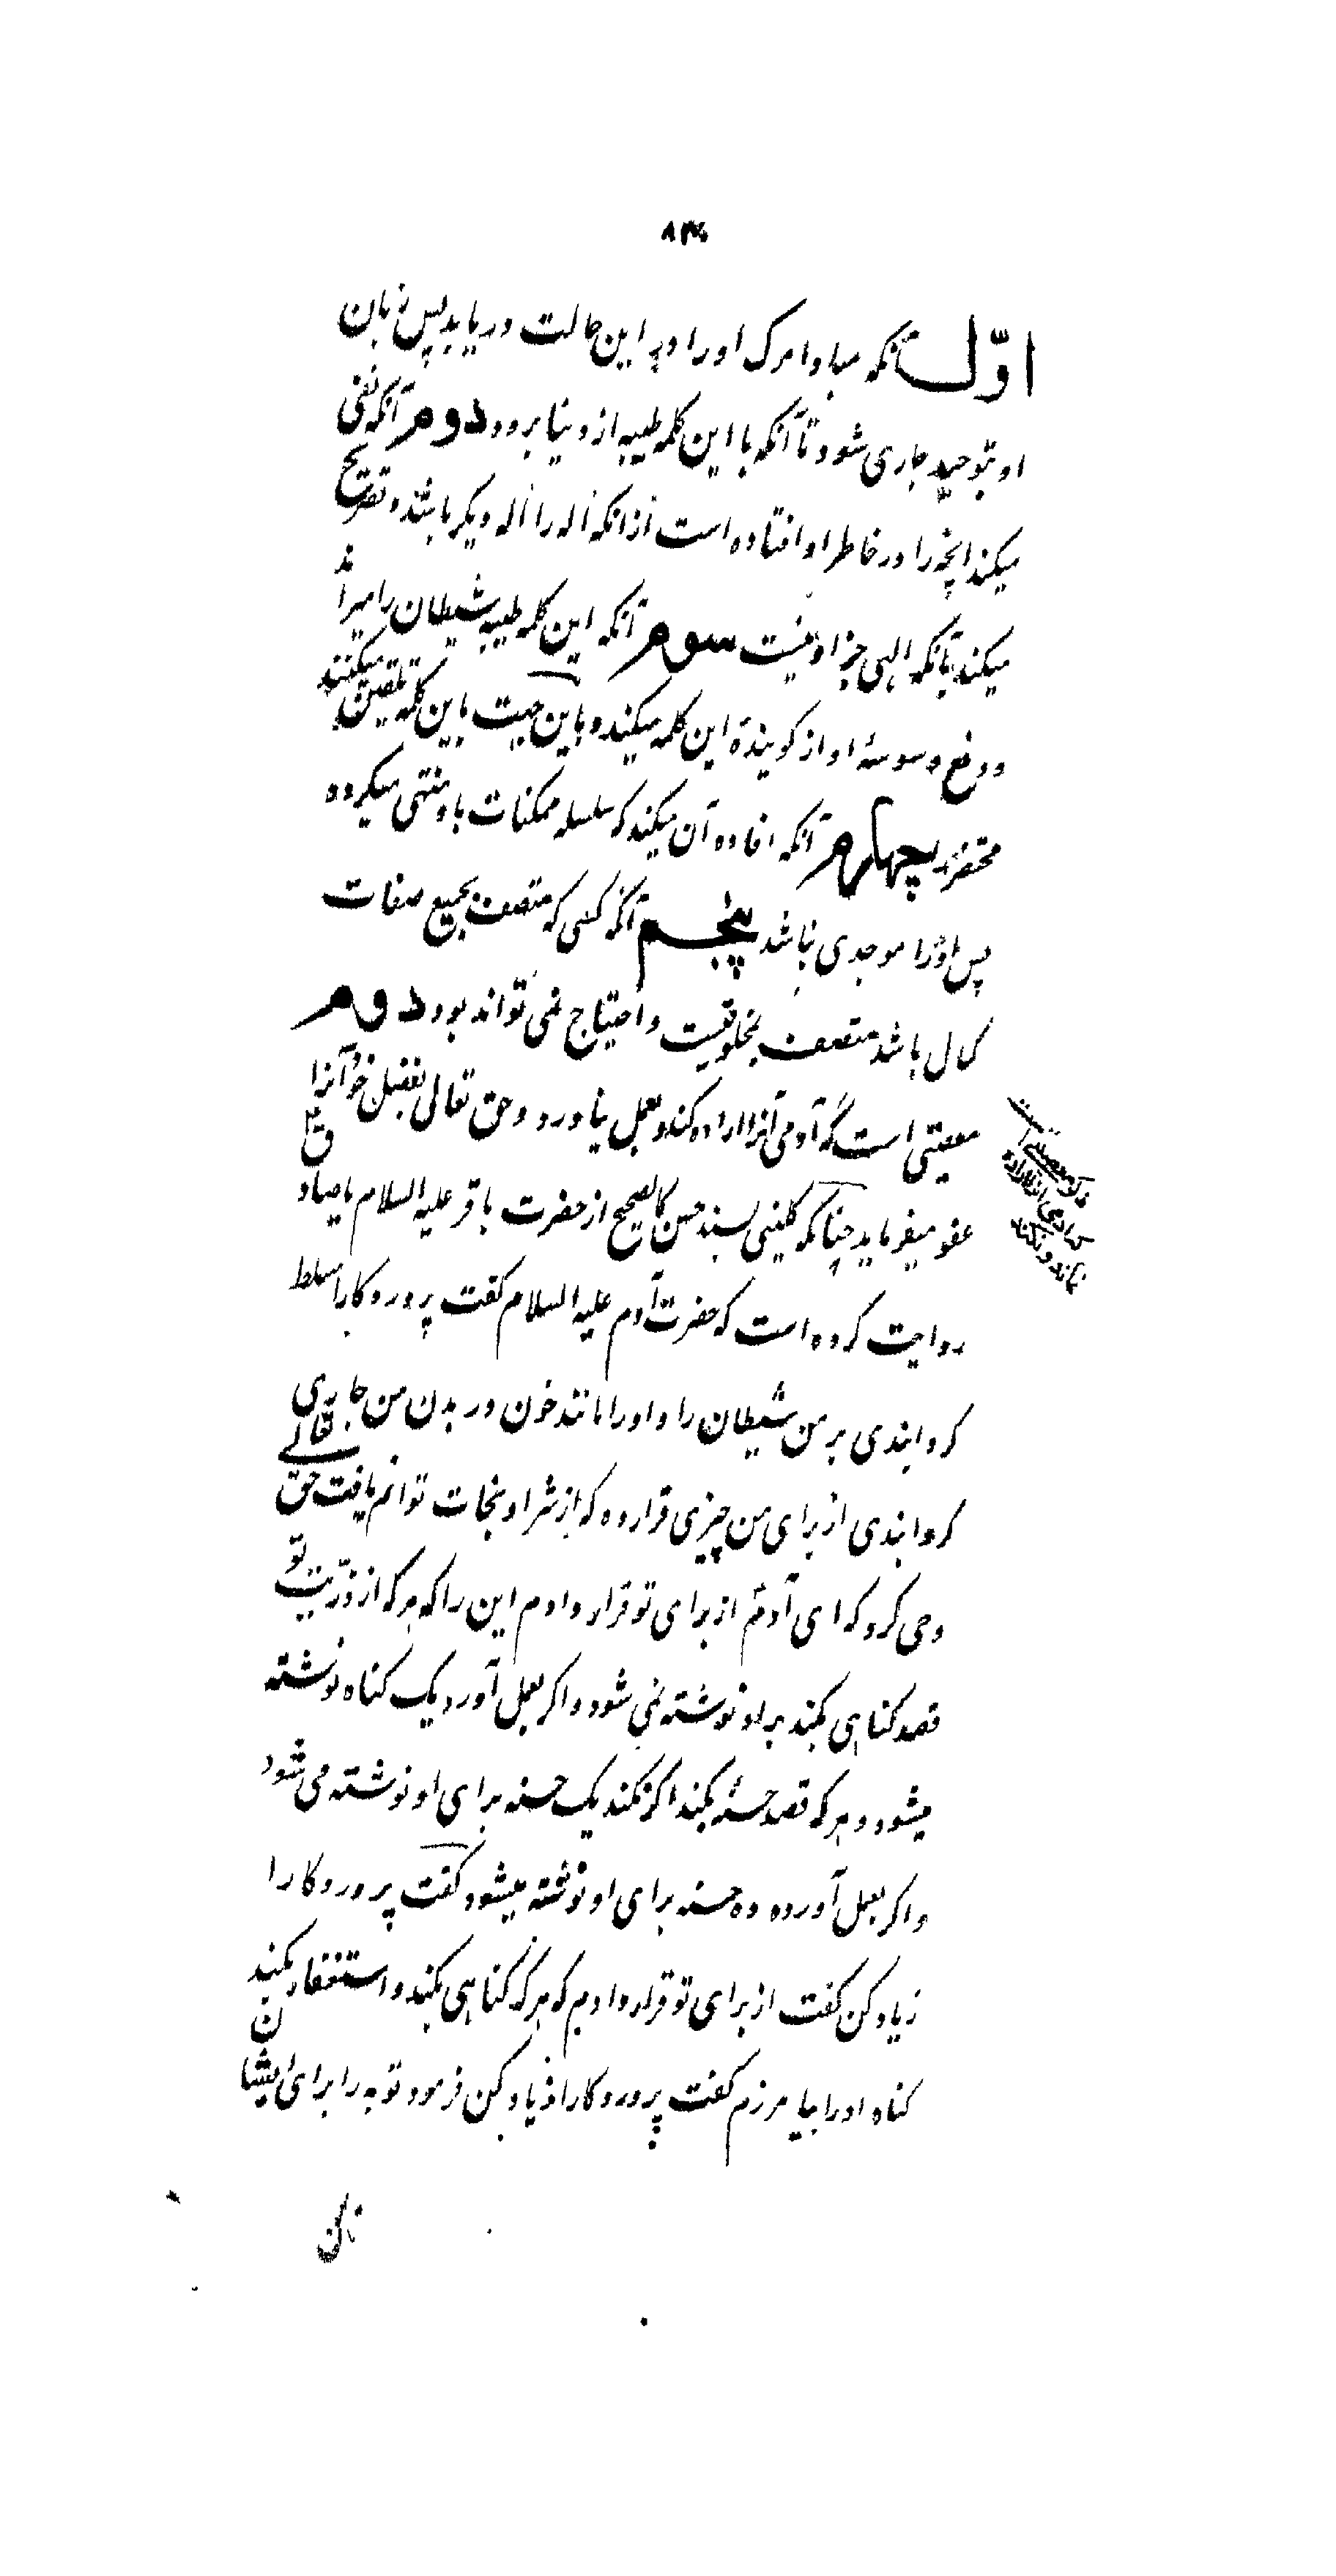 اوّل آنکه مبادا مرک او را در این حالت دریابد پس زبان
او بتوحید جاری شود تا آنکه با این کلمه طیبه از دنیا برود دوم آنکه نفی
میکند آنچه را در خاطر او افتاده است از آنکه اله را اله دیکر باشد و تصریح
میکند بآنکه الهی جز او نیست سوم آنکه این کلمه طیبه شیطان را میراند
و دفع وسوسهٔ او از کویندهٔ این کلمه میکند و باین جهت باین کلمه تلقین میکنند
محتضر را چهارم آنکه افاده آن میکند که سلسله ممکنات باو منتهی میکردد
پس او را موجدی نباشد پنجم آنکه کسی که متصف بجمیع صفات
کمال باشد متصف بمخلوقیت و احتیاج نمی تواند بود دوم
معصیتی است که آدمی آنرا اراده کند و بعمل نیاورد و حق تعالی بفضل خود آنرا
عفو میفرماید چنانکه کلینی بسند حسن کالصحیح از حضرت باقر علیه السلام یا صادق ع
روایت کرده است که حضرت آدم علیه السلام کفت پروردکارا مسلط
کردانیدی بر من شیطان را و او را مانند خون در بدن من جاری
کردانیدی از برای من چیزی قرار ده که از شر او نجات توانم یافت حق تعالے
وحی کرد که ای آدم از برای تو قرار دادم این را که هر که از ذرّیت تو
قصد کناهی بکند بر او نوشته نمی شود و اکر بعمل آورد یک کناه نوشته
میشود و هر که قصد حسنهٔ بکند اکر نکند یک حسنه برای او نوشته می شود
و اکر بعمل آورد ده حسنه برای او نوشته میشود کفت پروردکارا
زیاد کن کفت از برای تو قرار دادم که هر که کناهی بکند و استغفار بکند
کناه او را بیامرزم کفت پروردکارا زیاد کن فرمود توبه را برای ایشان